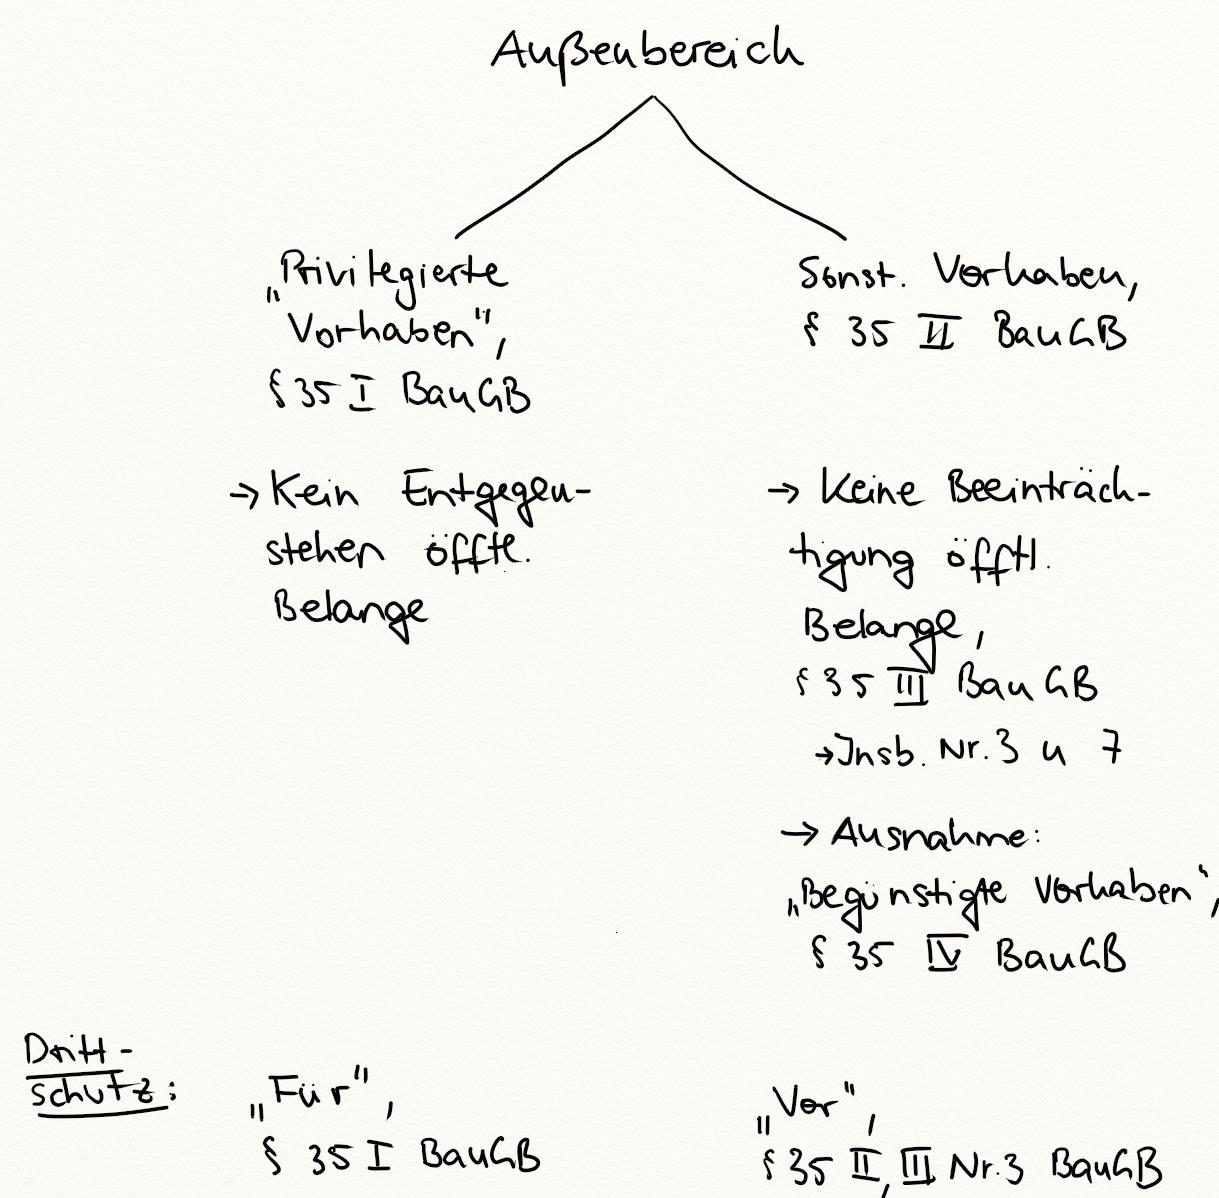 Außenbereich
„Privilegierte
Vorhaben",
§ 35 I BauGB
→ Kein Entgegen-
stehen öfftl.
Belange
Sonst. Vorhaben,
§ 35 II BauGB
→ Keine Beeinträch-
tigung öfftl.
Belange,
§ 35 III BauGB
→ Insb. Nr. 3 u 7
→ Ausnahme:
„Begünstigte Vorhaben",
§ 35 IV BauGB
Dritt-
schutz:
„Für",
§ 35 I BauGB
„Vor",
§ 35 II, III Nr. 3 BauGB